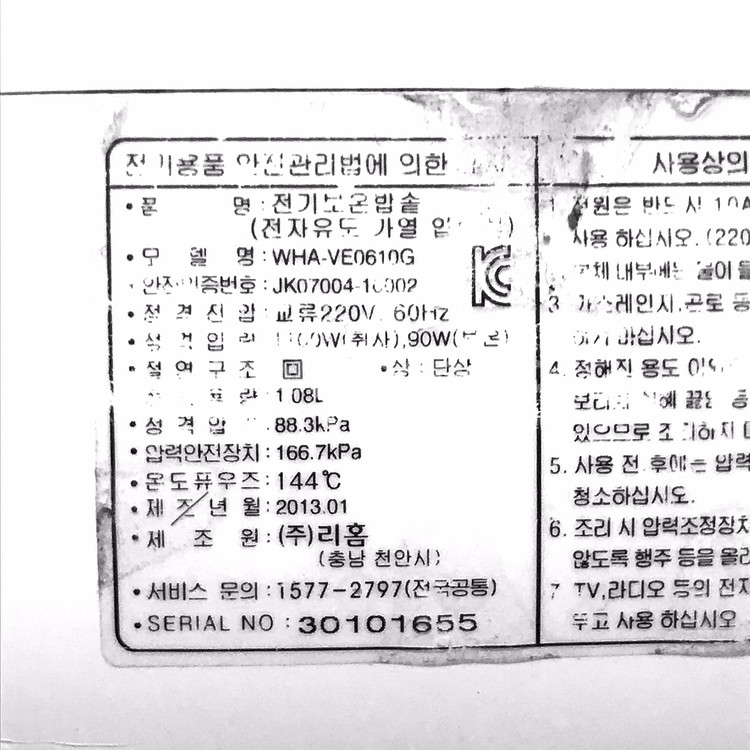 전기용품 안전관리법에 의한
• 품 명 : 전기보온밥솥
(전자유도 가열 압
• 모 델 명 : WHA-VE0610G
• 안전인증번호 : JK07004-1
• 정 격 전 압 : 교류220V, 60Hz
• 정 격 입 력 : (취사),90W(보온)
• 절 연 구 조 • 상 : 단상
1.08L
• 정 격 압 88.3kPa
• 압력안전장치 : 166.7kPa
• 온도퓨우즈 : 144℃
• 제 조 년 월 : 2013.01
• 제 조 원 : (주)리홈
(충남 천안시)
• 서비스 문의 : 1577-2797(전국공통)
• SERIAL NO : 30101655
사용상의
1. 전원은 반드시 10A
사용 하십시오. (220
내부에는
3. 가스레인지,곤로
하지 마십시오.
4. 정해진 용도
있으므로
5. 사용 전.후에는 압력
청소하십시오.
6. 조리 시 압력조정장치
않도록 행주 등을 올려
7. TV,라디오 등의 전자
두고 사용 하십시오